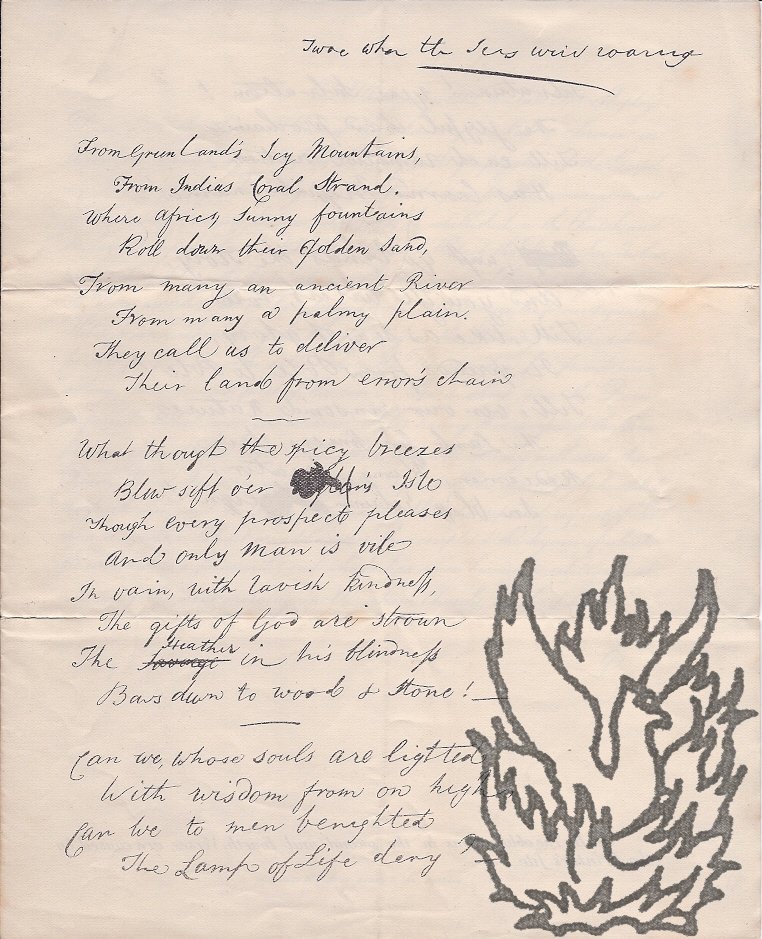 Twas when the Seas were roaring
From Greenland's Icy Mountains,
From Indias Coral Strand.
Where Africs Sunny fountains
Roll down their Golden Sand,
From many an ancient River
From many a palmy plain.
They call us to deliver
Their land from error's chain
What though the spicy breezes
Blow soft o'er Isle
Though every prospect pleases
And only Man is vile
In vain, with lavish kindness,
The gifts of God are strown
The Heathen savage in his blindness
Bows down to wood & Stone!
Can we, whose souls are lighted
With wisdom from on high,
Can we to men benighted
The Lamp of Life deny?